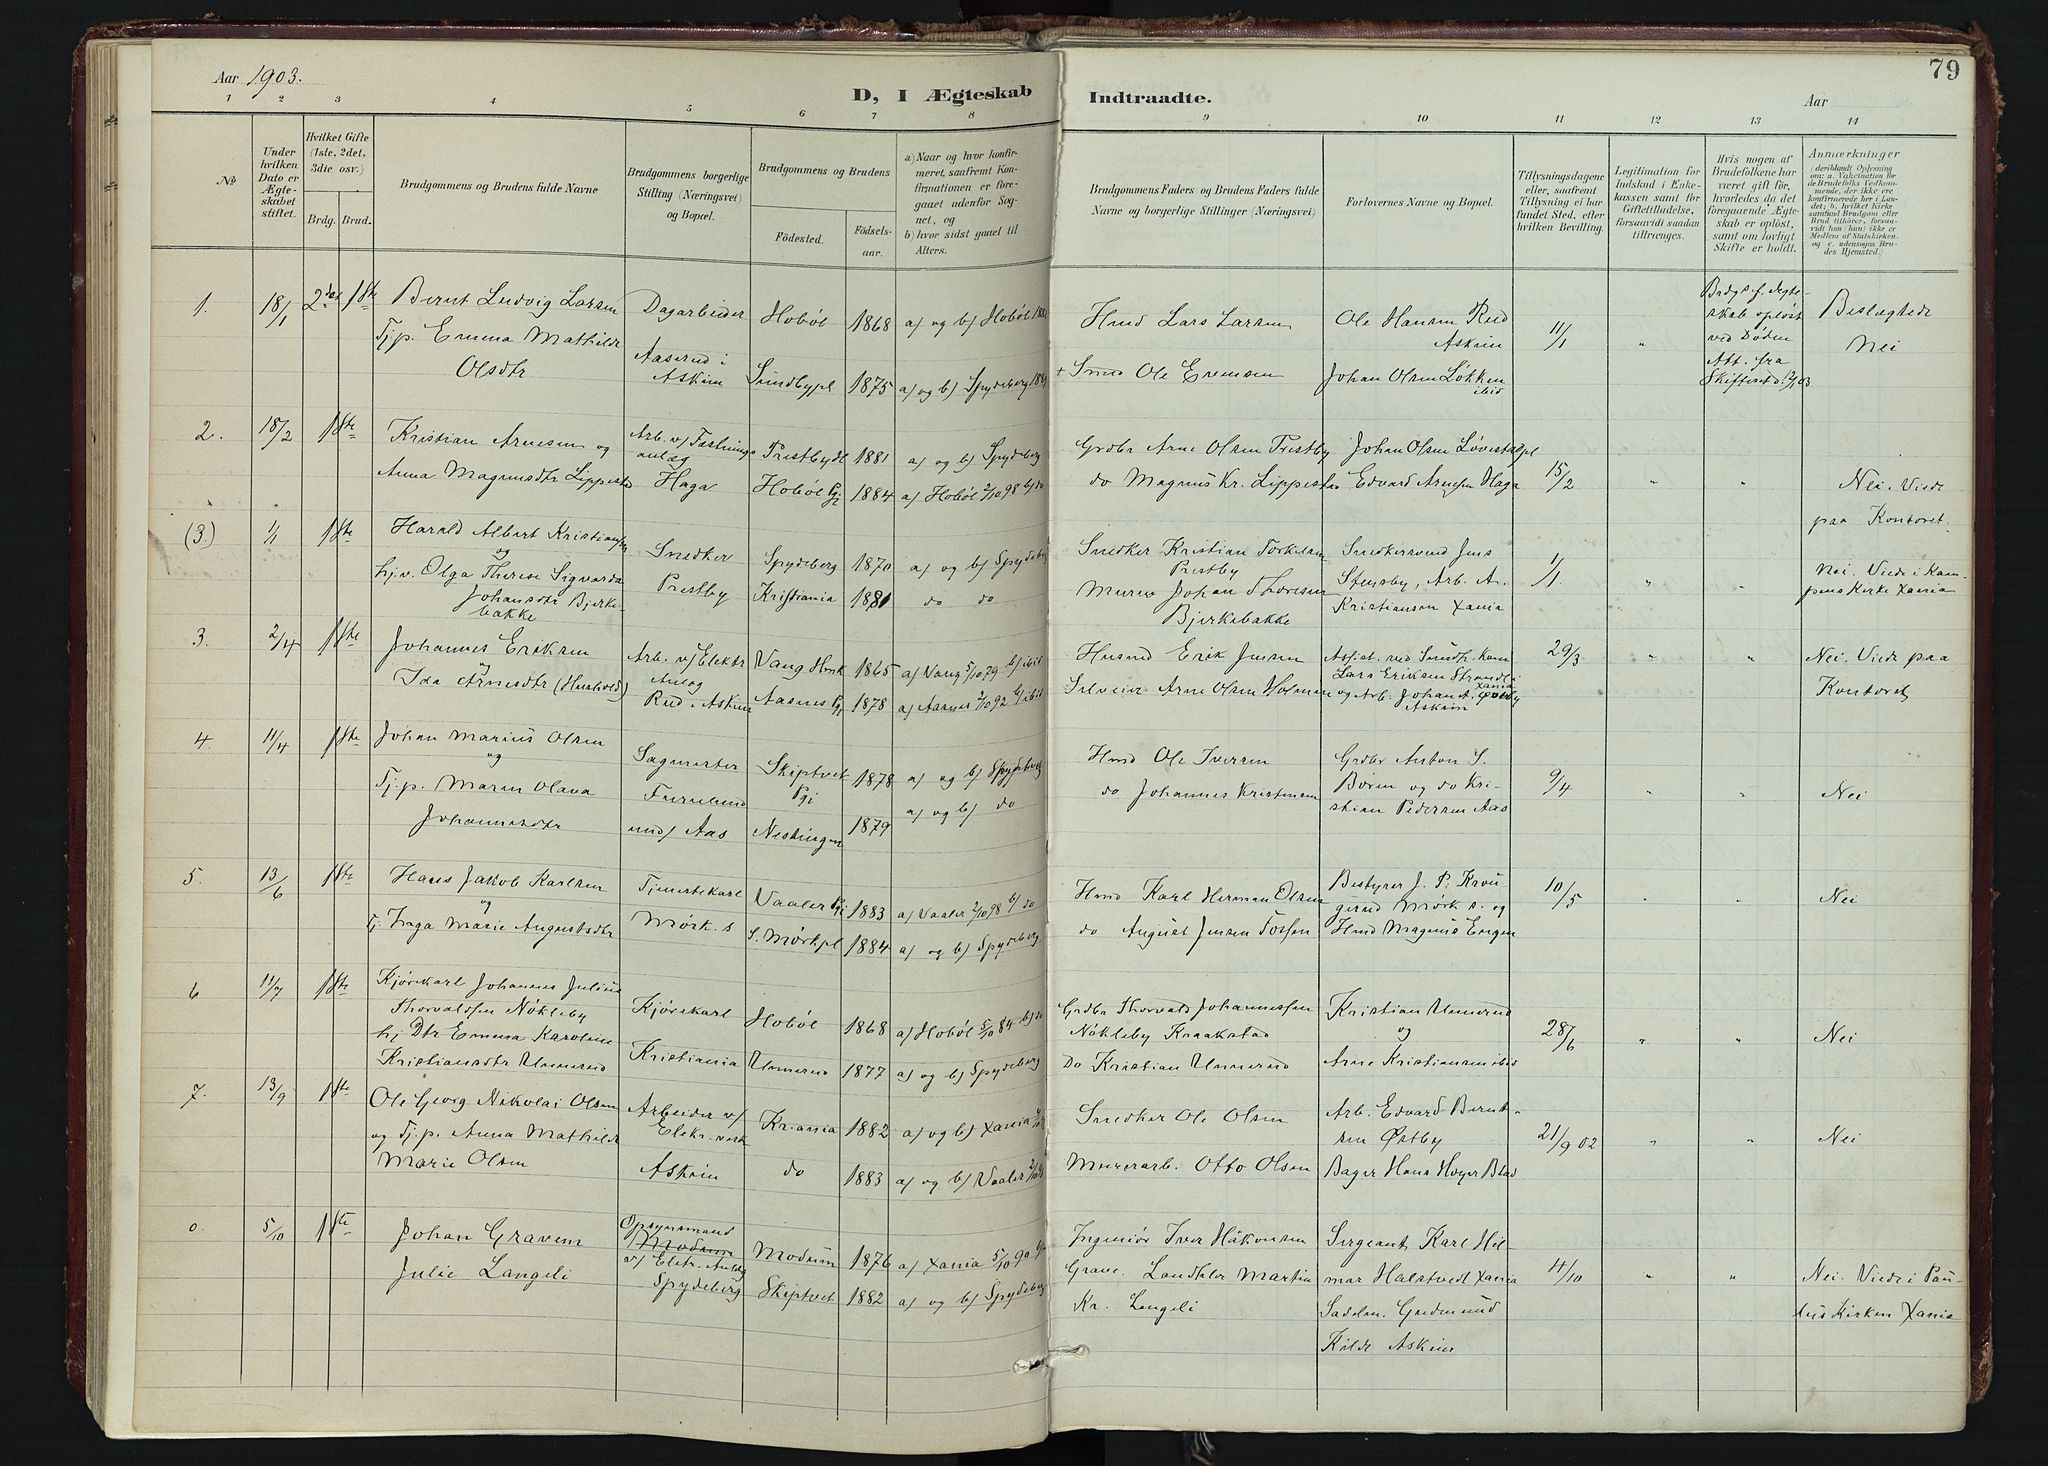 Aar 1903.
D, I Ægteskab
Indtraadte.
Aar
79
1 2 3 4 5 6 7 8 9 10 11 12 13 14
No
Under hvilken Dato er Ægteskabet stiftet.
Hvilket Gifte (1ste, 2det, 3die osv.)
Brdg. Brud.
Brudgommens og Brudens fulde Navne
Brudgommens borgerlige Stilling (Næringsvei) og Bopæl.
Brudgommens og Brudens
Födested.
Födselsaar.
a) Naar og hvor konfirmeret, saafremt Konfirmationen er foregaaet udenfor Sognet, og
b) hvor sidst gaaet til Alters.
Brudgommens Faders og Brudens Faders fulde Navne og borgerlige Stillinger (Næringsvei)
Forlovernes Navne og Bopæl.
Tillysningsdagene eller, saafremt Tillysning ei har fundet Sted, efter hvilken Bevilling.
Legitimation for Indskud i Enkekassen samt for Giftetilladelse, forsaavidt saadan tiltrænges.
Hvis nogen af Brudefolkene har været gift før, hvorledes da det foregaaende Ægteskab er oplöst, samt om lovligt Skifte er holdt.
Anmærkninger
(deriblandt Oplysning om: a. Vakcination for de Brudefolks Vedkommende, der ikke ere konfirmerede her i Landet; b. hvilket Kirkesamfund Brudgom eller Brud tilhörer, forsaavidt han (hun) ikke er Medlem af Statskirken, og c. udensogns Brudes Hjemsted.)
1. 18/1 2det 1ste Bernt Ludvig Larsen Dagarbeider Hoböl 1868 a) og b) Hoböl Hmd Lars Larsen Ole Hansen Rud Askim 11/1 " Brdgs f. Ægteskab opløst ved Døden Att. fra Skifteret d. 12/1 03 Beslægtede Nei
Tj.p. Emma Mathilde Olsdtr Aaserud i Askim Sundbypl 1875 a) og b) Spydeberg + Smed Ole Evensen Johan Olsen Løkken ibid
2. 18/2 1ste Kristian Arnesen og Arb. v/ Tæstnings anlæg Prestbydl 1881 a) og b) Spydeberg Grdbr Arne Olsen Prestby Johan Olsen Løvestadpl 15/2 " " Nei. Viede
Anna Magnusdtr Lippestad Haga Hoböl Pgj 1884 a) Hoböl 2/10 98 b) do do Magnus Kr. Lippestad Edvard Arnesen Haga paa Kontoret.
(3) 1/1 1ste Harald Albert Kristiansen og Snedker Spydeberg 1870 a) og b) Spydeberg Snedker Kristian Torkelsen Prestby Snedkersvend Jens 1/1. " " Nei. Viede i Kam-
hj.v. Olga Therese Sigvarda Johansdtr Bjerkebakke Prestby Kristiania 1881 do do Murer Johan Thoresen Bjerkebakke Stensby, Arb. A. Kristiansen Xania pens Kirke Xania
3. 2/4 1ste Johannes Eriksen og Arb. v/ Elektr Anlæg Vang Hmk 1865 a) Vang 5/10 79 b) ibid Husmd Erik Jensen 29/3 " " Nei. Viede paa
Ida Arnesdtr Rud. Askim Aasnes Pgj 1878 a) Aasnes 2/10 92 b) ibid Selveier Arne Olsen Holmen Lars Eriksen Strand i Xania og Arb. Johan A. Østby Askim Kontoret
4. 11/4 1ste Johan Marius Olsen og Sagmester Skiptvet Pgj 1878 a) og b) Hmd Ole Iversen Grdbr Anton S. 9/4 " " Nei
Tj.p. Maren Olava Johannesdtr Furulund und/ Aas 1879 a) og b) do do Johannes Kristensen Böien og do Kristian Pedersen Aas
5. 13/6 1ste Hans Jakob Karlsen og Tjenestekarl Vaaler Pgj 1883 a) Vaaler 2/10 98 b) do Hmd Karl Herman Olsen Bestyrer J. P. 10/5 " " Nei
Tj. Inga Marie Augustsdtr Mörk. s S. Mörkpl 1884 a) og b) Spydeberg do August Jensen Fossen Mörk s. og Hmd Magnus Engen
6 11/7 1ste Kjörekarl Johannes Julius Thorvaldsen Nökleby Kjörekarl Hoböl 1868 a) Hoböl 5/10 84 b) do Grdbr Thorvald Johannessen Nökleby Kraakstad Kristian Unnerud og 28/6 " " Nei
hj Dtr Emma Karoline Kristiansdtr Unnerud Kristiania Unnerud 1877 a) og b) Spydeberg Do Kristian Unnerud Arne Kristiansen ibid
7. 13/9 1ste Ole Georg Nikolai Olsen Arbeider v/ Elekr. verk Kr.ania 1882 a) og b) Xania Snedker Ole Olsen Arb. Edvard Berntsen Østby 21/9 02 " " Nei
og Tj.p. Anna Mathilde Marie Olsen Askim do 1883 a) og b) Vaaler Murerarb. Otto Olsen Bager Hans Høyer
0. 5/10 1ste Johan Gravem Opsynsmand v/ Elctr. Anlæg Modum 1876 a) Xania 5/10 90 Ingeniør Iver Håkonsen Sergeant Karl Hil- 4/10 " " Nei. Viede i Pau-
Julie Langeli Spydeberg Skiptvet 1882 a) og b) Spydeberg Grave. Landhdler Martin mar Halstvedt Xania lus Kirken Xania
Kr. Langeli Sadelm. Gudmund
Kilde Askim